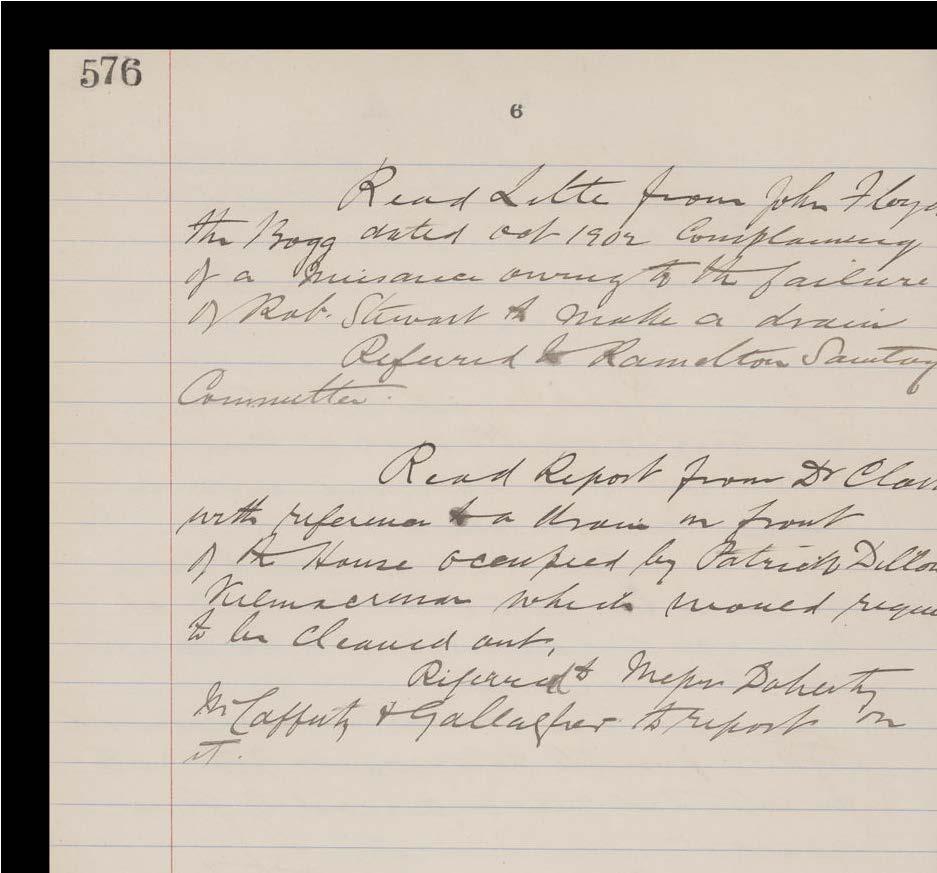 576
6
Read Lette from John Floyd
the Bogg dated oct 1902 Complaining
of a nuisance owing to the failure
of Rob. Stewart to make a drain
Referred to Ramelton Sanitay
Committee.
Read Report from Dr Clar
with reference to a drain in front
of the House occupied by Patrick Dillon
Kilmacrenan which would requi
to be cleaned out,
Referred to Messrs Doherty
McCafferty & Gallagher to report on
it.